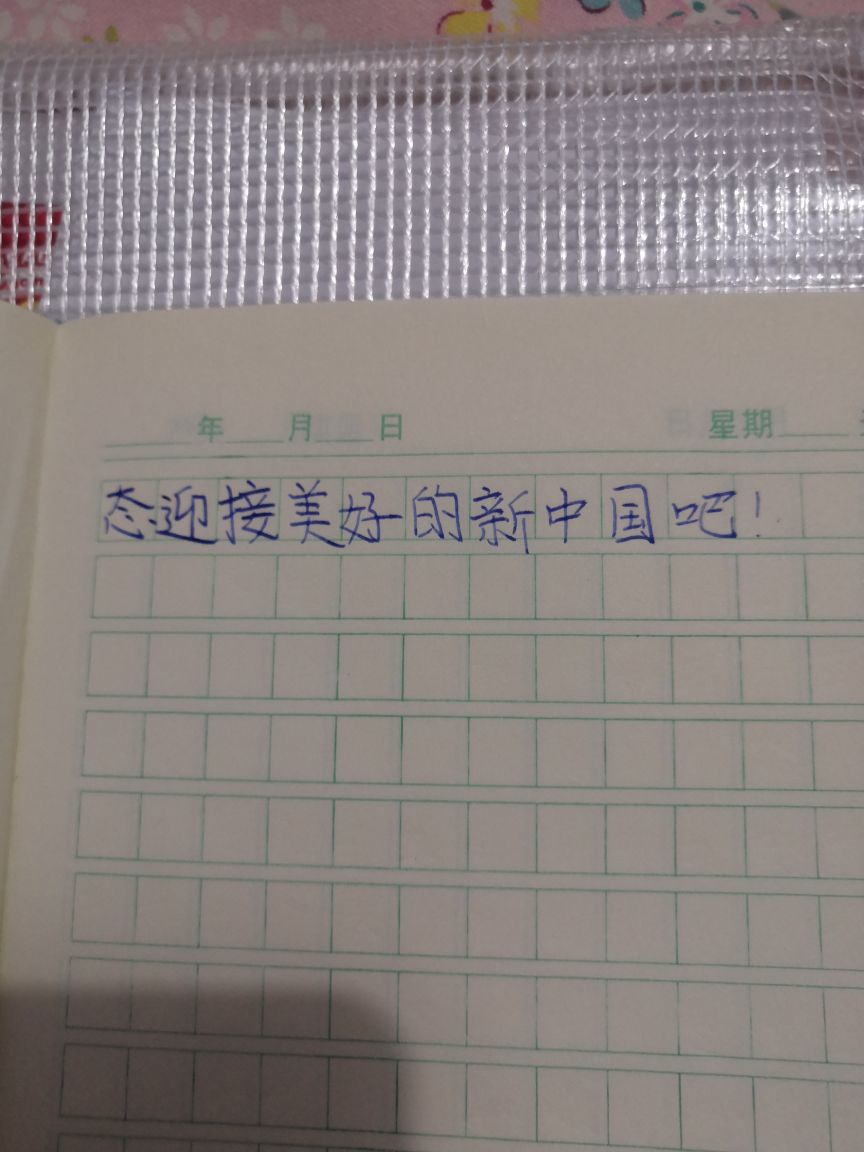 年 月 日 星期
态迎接美好的新中国吧！